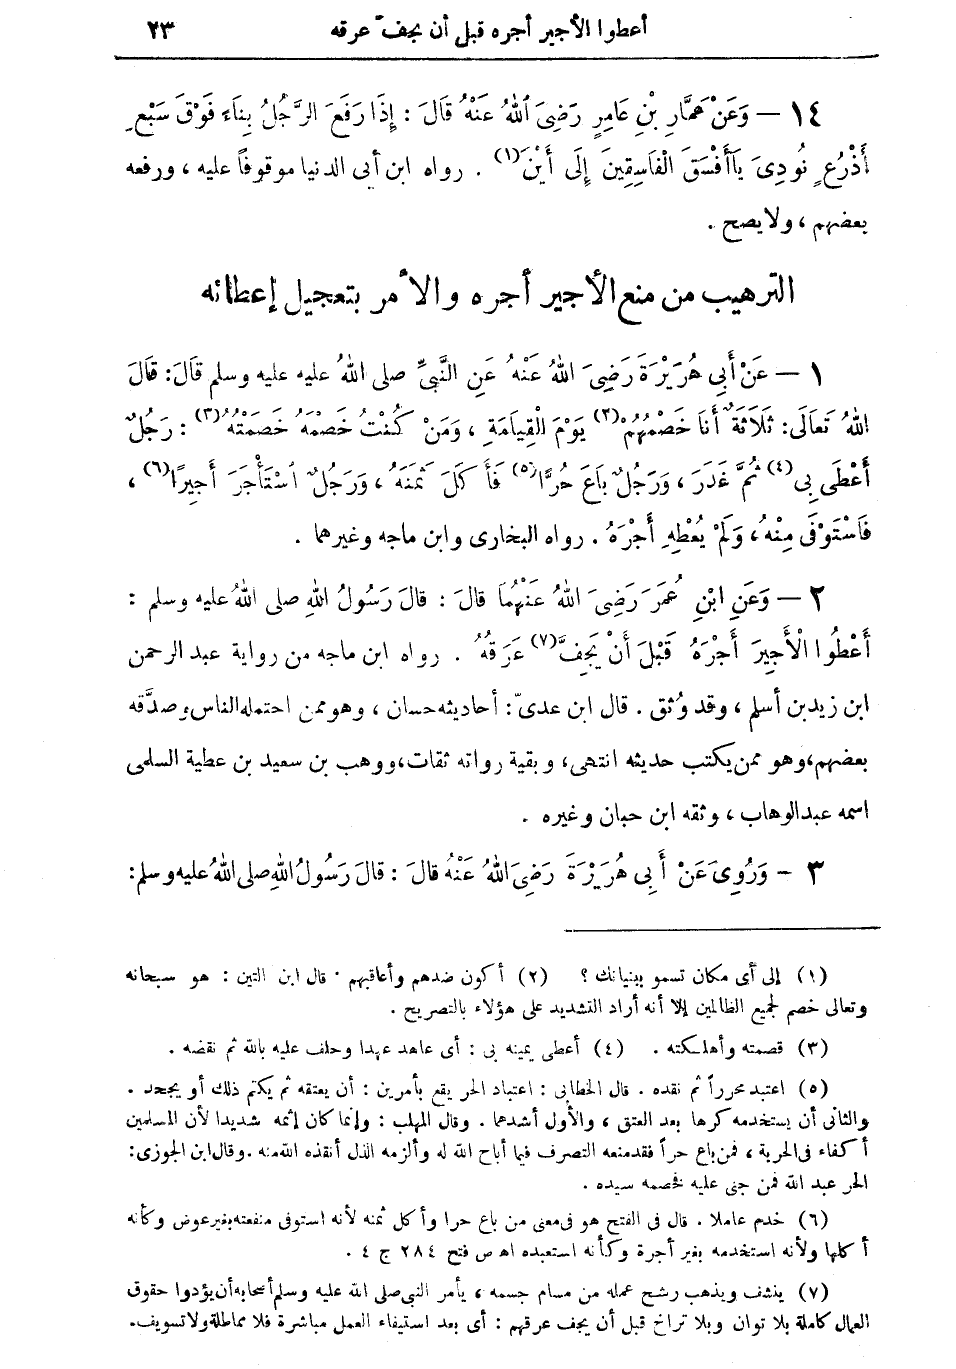 أعطوا الأجير أجره قبل أن يجف عرقه ٢٣
١٤ — وَعَنْ عَمَّارِ بْنِ عَامِرٍ رَضِىَ اللهُ عَنْهُ قَالَ : إِذَا رَفَعَ الرَّجُلُ بِنَاءً فَوْقَ سَبْعِ
أَذْرُعٍ نُودِىَ يَا أَفْسَقَ الْفَاسِقِينَ إِلَى أَيْنَ(١) . رواه ابن أبى الدنيا موقوفاً عليه ، ورفعه
بعضهم ، ولا يصح .
الترهيب من منع الأجير أجره والأمر بتعجيل إعطائه
١ — عَنْ أَبِي هُرَيْرَةَ رَضِىَ اللهُ عَنْهُ عَنِ النَّبِيِّ صلى اللهُ عليه عليه وسلم قَالَ : قَالَ
اللهُ تَعَالَى : ثَلَاثَةٌ أَنَا خَصْمُهُمْ(٢) يَوْمَ الْقِيَامَةِ ، وَمَنْ كُنْتُ خَصْمَهُ خَصَمْتُهُ(٣) : رَجُلٌ
أَعْطَى بِى(٤) ثُمَّ غَدَرَ ، وَرَجُلٌ بَاعَ حُرًّا(٥) فَأَكَلَ ثَمَنَهُ ، وَرَجُلٌ اسْتَأْجَرَ أَجِيرًا(٦) ،
فَاسْتَوْفَى مِنْهُ ، وَلَمْ يُعْطِهِ أَجْرَهُ . رواه البخارى وابن ماجه وغيرهما .
٢ — وَعَنِ ابْنِ عُمَرَ رَضِىَ اللهُ عَنْهُمَا قَالَ : قَالَ رَسُولُ اللهِ صلى اللهُ عليه وسلم :
أَعْطُوا الْأَجِيرَ أَجْرَهُ قَبْلَ أَنْ يَجِفَّ(٧) عَرَقُهُ . رواه ابن ماجه من رواية عبد الرحمن
ابن زيد بن أسلم ، وقد وُثق . قال ابن عدىّ : أحاديثه حسان ، وهو ممن احتمله الناس وصدَّقه
بعضهم ، وهو ممن يكتب حديثه انتهى ، وبقية رواته ثقات ، ووهب بن سعيد بن عطية السلمى
اسمه عبد الوهاب ، وثقه ابن حبان وغيره .
٣ — وَرُوِىَ عَنْ أَبِي هُرَيْرَةَ رَضِىَ اللهُ عَنْهُ قَالَ : قَالَ رَسُولُ اللهِ صلى اللهُ عليه وسلم :
(١) إلى أى مكان تسمو ببنيانك ؟ (٢) أكون ضدهم وأعاقبهم . قال ابن التين : هو سبحانه
وتعالى خصم لجميع الظالمين إلا أنه أراد التشديد على هؤلاء بالتصريح .
(٣) قصمته وأهلكته . (٤) أعطى يمينه بى : أى عاهد عهدا وحلف عليه بالله ثم نقضه .
(٥) اعتبد محرراً ثم نقده . قال الخطابى : اعتباد الحر يقع بأمرين : أن يعتقه ثم يكتم ذلك أو يجحد .
والثانى أن يستخدمه كرها بعد العتق ، والأول أشدهما . وقال المهلب : وإنما كان إثمه شديدا لأن المسلمين
أكفاء فى الحرية ، فمن باع حراً فقد منعه التصرف فيما أباح الله له وألزمه الذل أنقذه الله منه . وقال ابن الجوزى :
الحر عبد الله فمن جنى عليه فخصمه سيده .
(٦) خدم عاملا . قال فى الفتح هو فى معنى من باع حرا وأكل ثمنه لأنه استوفى منفعته بغير عوض وكأنه
أكلها ولأنه استخدمه بغير أجرة وكأنه استعبده اه ص فتح ٢٨٤ ج ٤ .
(٧) ينشف ويذهب رشح عمله من مسام جسمه ، يأمر النبى صلى الله عليه وسلم أصحابه أن يؤدوا حقوق
العمال كاملة بلا توان وبلا تراخ قبل أن يجف عرقهم : أى بعد استيفاء العمل مباشرة فلا مماطلة ولا تسويف .